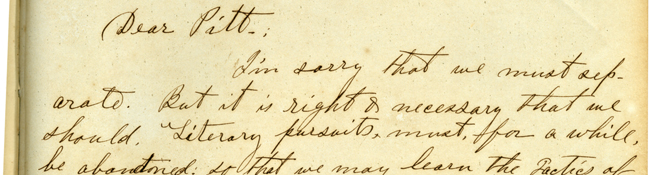 Dear Pitt.:
I'm sorry that we must sep-
arate. But it is right & necessary that we
should. "Literary pursuits, must, for a while,
be abandoned; so that we may learn the Tactics of